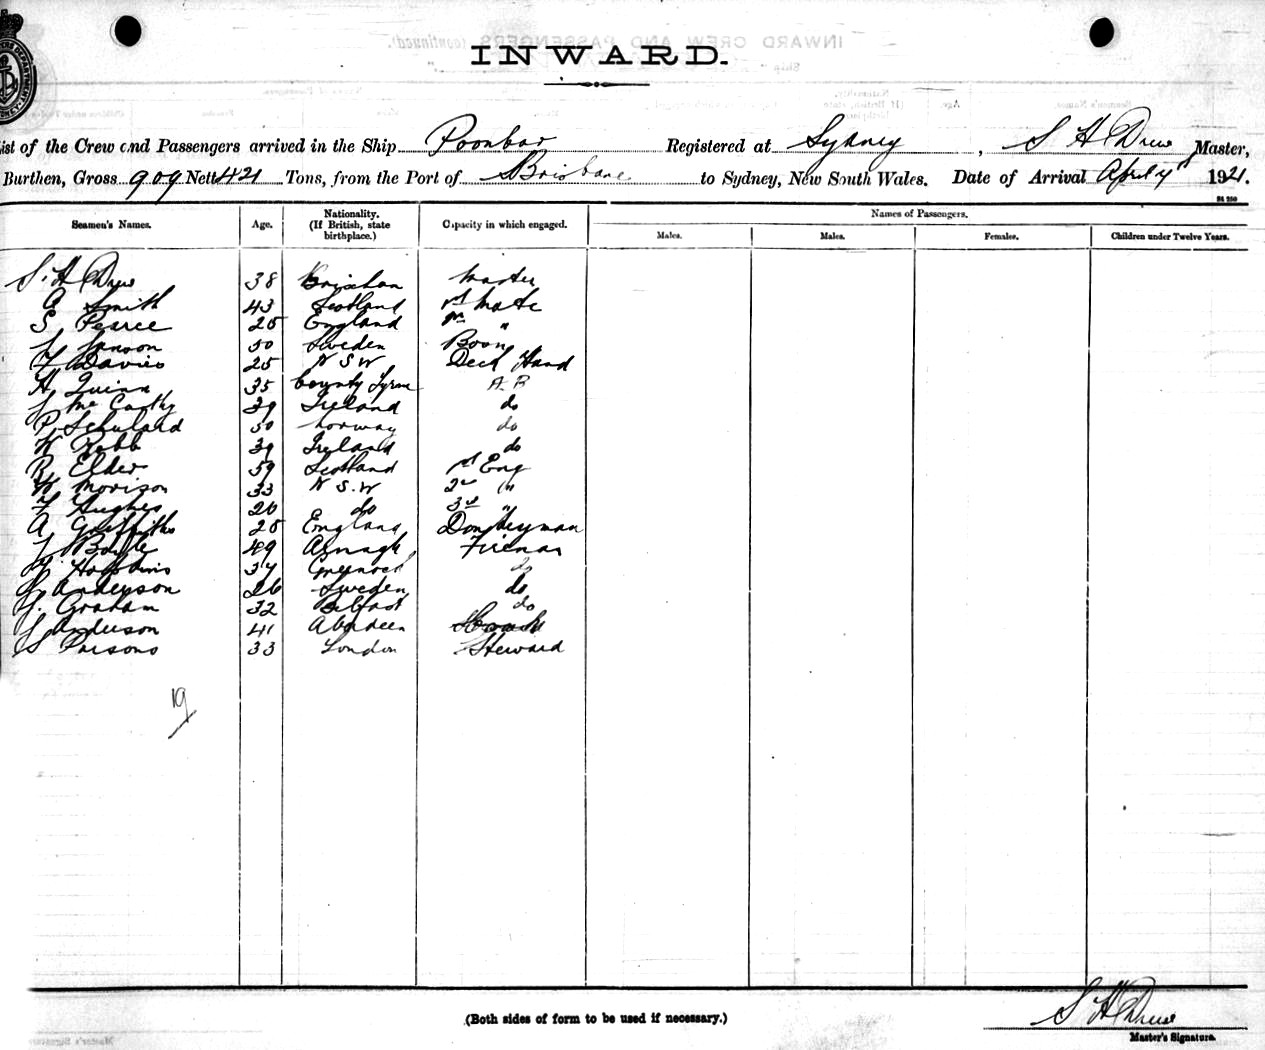 INWARD.
ist of the Crew and Passengers arrived in the Ship Poonbar Registered at Sydney, S H Drew Master,
Burthen, Gross 909 Nett 421 Tons, from the Port of Brisbane to Sydney, New South Wales. Date of Arrival April 4th 1921.
Names of Passengers.
Seamen's Names. Age. Nationality. (If British, state birthplace.) Capacity in which engaged. Males. Males. Females. Children under Twelve Years.
S. H Drew 38 Brixham Master
A Smith 43 Scotland 1st Mate
S Pearce 25 England 2nd "
Janson 50 Sweden Bosn
F Davies 25 N S W Deck Hand
H Quinn 35 County Tyrone A B
J McCarthy 39 Ireland do
P Schulard 50 Norway do
W Robb 39 Ireland do
R Elder 59 Scotland 1st Eng
W Morison 33 N S. W 2nd "
F Hughes 26 do 3rd "
A Griffiths 25 England Donkeyman
J Boyle 49 Armagh Fireman
Hobbins 37 Greenock do
Anderson 26 Sweden do
J. Graham 32 Belfast do
J Anderson 41 Aberdeen Cook
S Parsons 33 London Steward
19
(Both sides of form to be used if necessary.)
S H Drew
Master's Signature.